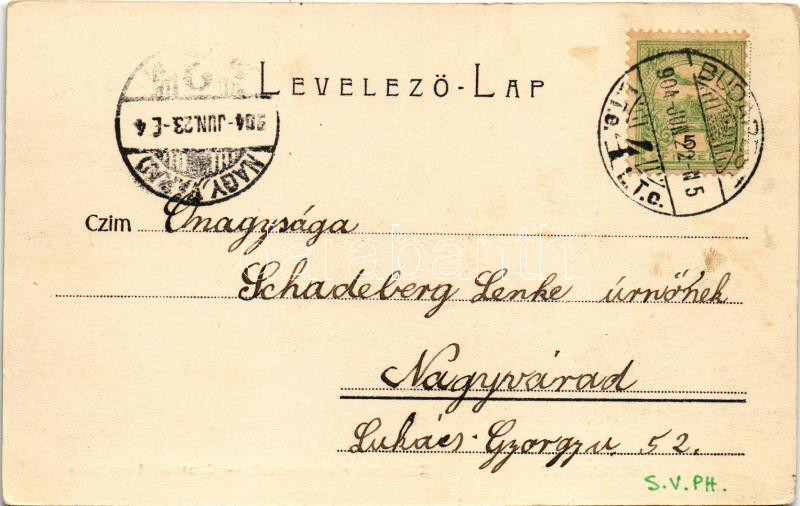 LEVELEZÖ-LAP
NAGYVÁRAD
904-JUN.23-É4
BUDAPEST
904 JUN 22-N5
5
Czim Önagysága
Schadeberg Lenke úrnőnek
Nagyvárad
Lukács-György u. 52.
S.V.PH.
darabanth